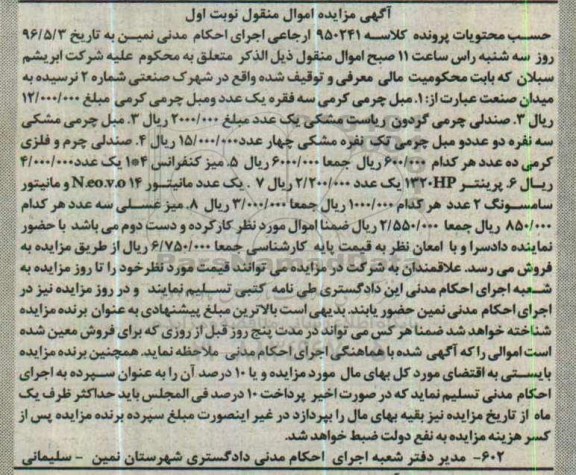 آگهی مزایده اموال منقول نوبت اول
حسب محتویات پرونده کلاسه ۹۵۰۲۴۱ ارجاعی اجرای احکام مدنی نمین به تاریخ ۹۶/۵/۳
روز سه شنبه راس ساعت ۱۱ صبح اموال منقول ذیل الذکر متعلق به محکوم علیه شرکت ابریشم
سبلان که بابت محکومیت مالی معرفی و توقیف شده واقع در شهرک صنعتی شماره ۲ نرسیده به
میدان صنعت عبارت از: ۱. مبل چرمی کرمی سه فقره یک عدد ومبل چرمی کرمی مبلغ ۱۲/۰۰۰/۰۰۰
ریال ۳. صندلی چرمی گردون ریاست مشکی یک عدد مبلغ ۲/۰۰۰/۰۰۰ ریال ۳. مبل چرمی مشکی
سه نفره دو عددو مبل چرمی تک نفره مشکی چهار عدد۱۵/۰۰۰/۰۰۰ ریال ۴. صندلی چرم و فلزی
کرمی ده عدد هر کدام ۶۰۰/۰۰۰ ریال جمعا ۶/۰۰۰/۰۰۰ ریال ۵. میز کنفرانس ۴*۱ یک عدد۴/۰۰۰/۰۰۰
ریال ۶. پرینتر ۱۳۲۰HP یک عدد ۲/۲۰۰/۰۰۰ ریال ۷ . یک عدد مانیتور ۱۴ N.eo.v.o و مانیتور
سامسونگ ۲ عدد هر کدام ۱/۰۰۰/۰۰۰ ریال جمعا ۳/۰۰۰/۰۰۰ ریال ۸. میز عسلی سه عدد هر کدام
۸۵۰/۰۰۰ ریال جمعا ۲/۵۵۰/۰۰۰ ریال ضمنا اموال مورد نظر کارکرده و دست دوم می باشد با حضور
نماینده دادسرا و با امعان نظر به قیمت پایه کارشناسی جمعا ۶/۷۵۰/۰۰۰ ریال از طریق مزایده به
فروش می رسد. علاقمندان به شرکت در مزایده می توانند قیمت مورد نظر خود را تا روز مزایده به
شعبه اجرای احکام مدنی این دادگستری طی نامه کتبی تسلیم نمایند و در روز مزایده نیز در
اجرای احکام مدنی نمین حضور یابند. بدیهی است بالاترین مبلغ پیشنهادی به عنوان برنده مزایده
شناخته خواهد شد ضمنا هر کس می تواند در مدت پنج روز قبل از روزی که برای فروش معین شده
است اموالی را که آگهی شده با هماهنگی اجرای احکام مدنی ملاحظه نماید. همچنین برنده مزایده
بایستی به اقتضای مورد کل بهای مال مورد مزایده و یا ۱۰ درصد آن را به عنوان سپرده به اجرای
احکام مدنی تسلیم نماید که در صورت اخیر پرداخت ۱۰ درصد فی المجلس باید حداکثر ظرف یک
ماه از تاریخ مزایده نیز بقیه بهای مال را بپردازد در غیر اینصورت مبلغ سپرده برنده مزایده پس از
کسر هزینه مزایده به نفع دولت ضبط خواهد شد.
۶۰۲- مدیر دفتر شعبه اجرای احکام مدنی دادگستری شهرستان نمین - سلیمانی